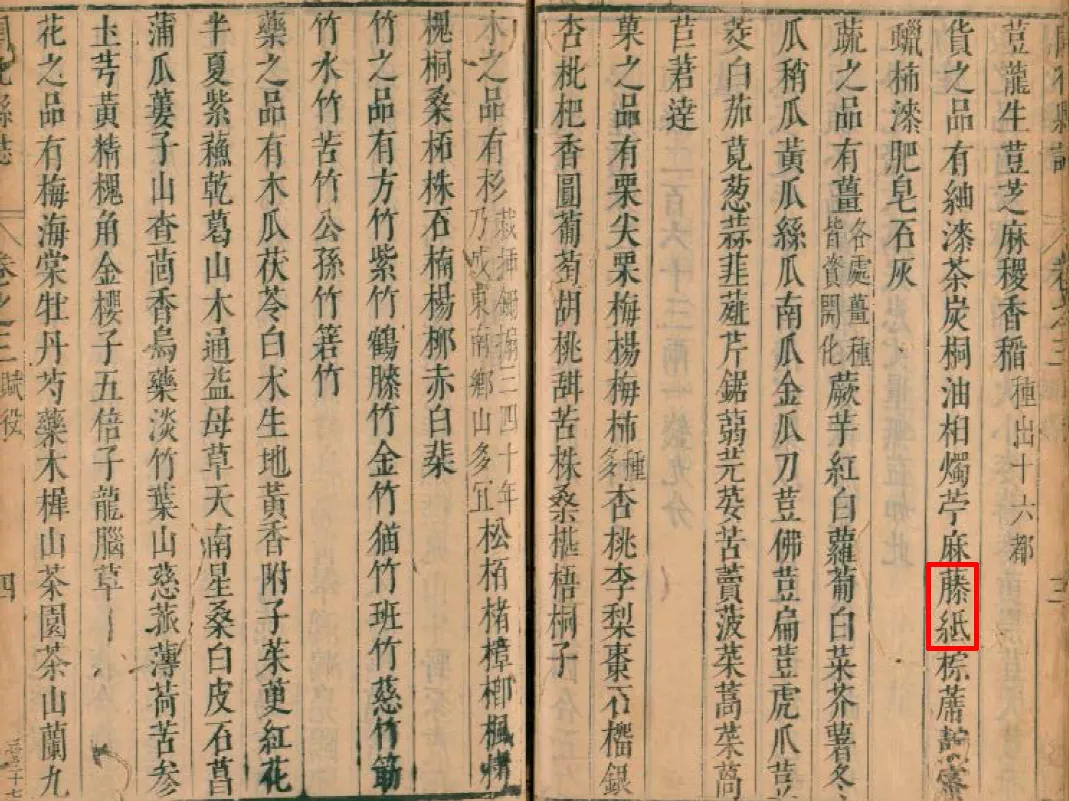 荳龍生荳芝麻稷香稻種出十六都
貨之品有紬漆茶炭桐油桕燭苧麻藤紙棕蓆
蠟柿漆肥皂石灰
蔬之品有薑各處薑種皆資開化蕨芋紅白蘿蔔白菜芥薯冬
瓜稍瓜黃瓜絲瓜南瓜金瓜刀荳佛荳扁荳虎爪荳
茭白茄莧葱蒜韭薤芹鋸蒻芫荽苦蕒菠菜萵菜茼
苣莙薘
菓之品有栗尖栗梅楊梅柿種多杏桃李梨棗石榴銀
杏枇杷香圓葡萄胡桃甜苦株桑椹梧桐子
木之品有杉栽插鋤掃三四十年乃成東南鄉山多宜松栢楮樟榔楓
槐桐桑柘株石楠楊柳赤白棐
竹之品有方竹紫竹鶴膝竹金竹猫竹班竹慈竹筋
竹水竹苦竹公孫竹箬竹
藥之品有木瓜茯苓白朮生地黃香附子茱萸紅花
半夏紫蘓乾葛山木通益母草天南星桑白皮石菖
蒲瓜蔞子山查茴香烏藥淡竹葉山慈菰薄荷苦參
土芎黃精槐角金櫻子五倍子龍腦草
花之品有梅海棠牡丹芍藥木樨山茶園茶山蘭九
縣誌 卷之三 賦役 四